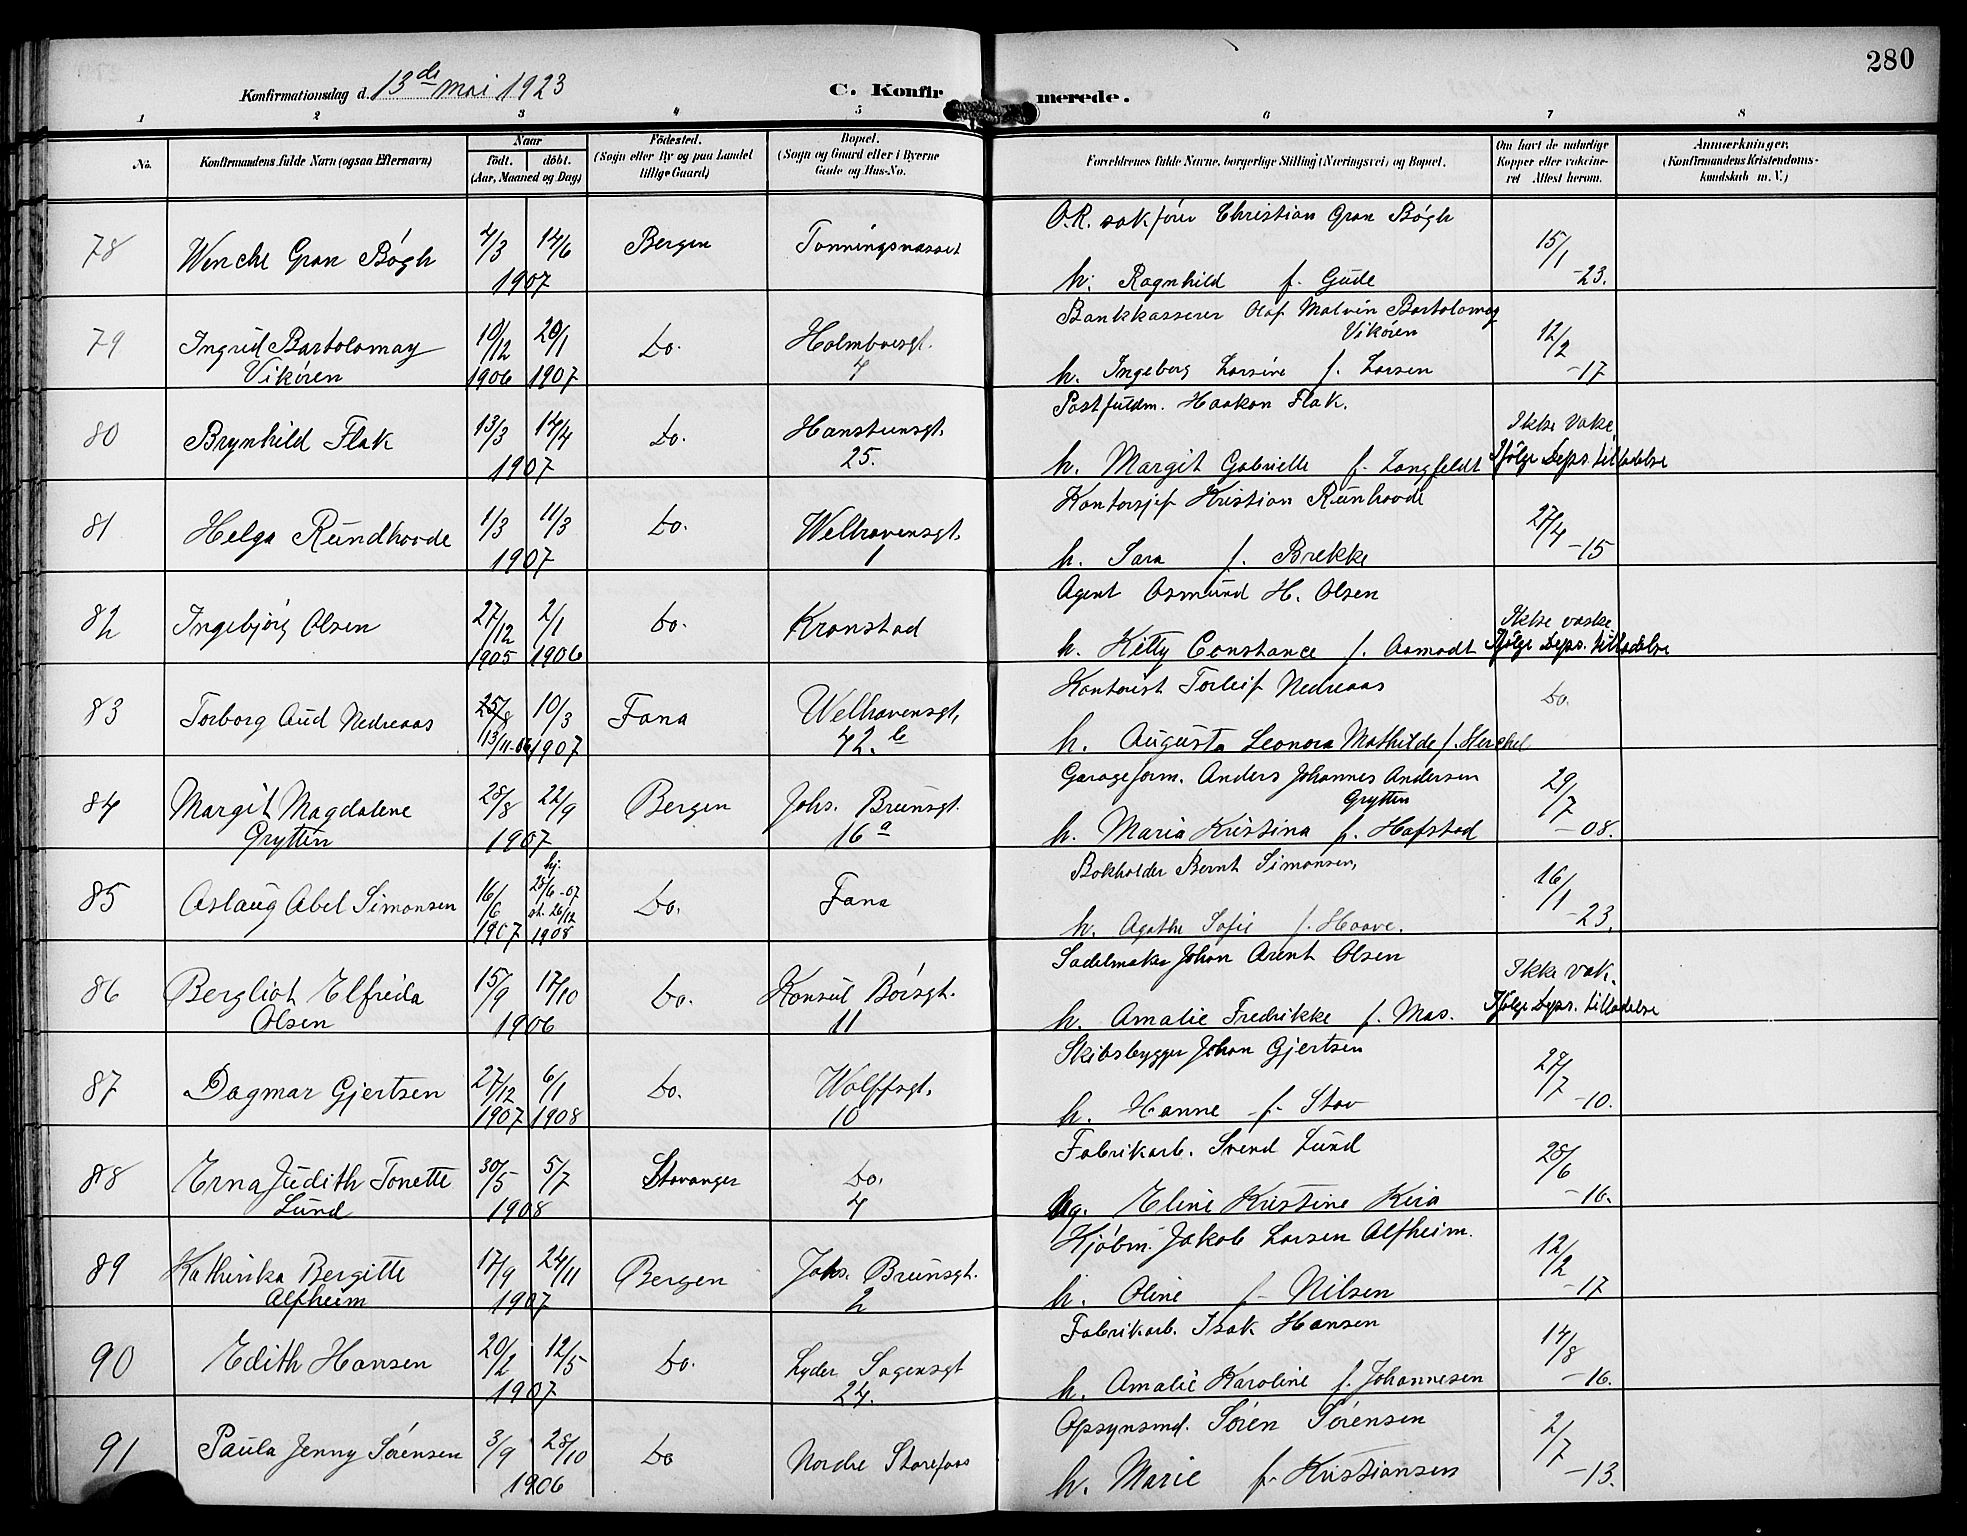 280
Konfirmationsdag d. 13de mai 1923
C. Konfirmerede.
1 2 3 4 5 6 7 8
No.
Konfirmandens fulde Navn (ogsaa Efternavn)
Naar
født. døbt.
(Aar, Maaned og Dag)
Fødested.
(Sogn eller By og paa Landet
tillige Gaard)
Bopæl.
(Sogn og Gaard eller i Byerne
Gade og Hus-No.
Forældrenes fulde Navne, borgerlige Stilling (Næringsvei) og Bopæl.
Om havt de naturlige
Kopper eller vakcine-
ret Attest herom.
Anmærkninger.
(Konfirmandens Kristendoms-
kundskab m. V.)
78 Wenche Gran Bøgh 4/3 14/6 1907 Bergen Tonningsnesset
O.R. sakfører Christian Gran Bøgh
h. Ragnhild f. Gude 15/1 -23.
79 Ingrid Bartolomay
Vikøren 10/12 1906 20/1 1907 Do. Holmboesgt.
4
Bankkasserer Olaf Malvin Bartolomay
Vikøren
h. Ingeborg Larsine f. Larsen 12/2 -17
80 Brynhild Flak 13/3 14/4 1907 Do. Hansteensgt.
25.
Postfuldm. Haakon Flak.
h. Margit Gabrielle f. Langfeldt
Ikke vakc.
Ifølge Deps. tilladelse
81 Helga Rundhovde 1/3 11/3 1907 Do. Welhavensgt.
1
Kontorsjef Kristian Runhovde
h. Sara f. Brekke 27/4 -15
82 Ingebjørg Olsen 27/12 1905 2/1 1906 Do. Kronstad
Agent Osmund H. Olsen
h. Kitty Constance f. Aamodt
Ikke vakc
Ifølge Deps. tilladelse
83 Torborg Aud Nedreaas 25/8 13/11-06 10/3 1907 Fana Welhavensgt,
42. b
Kontorist Torleif Nedreaas
h. Augusta Leonora Mathilde f. Herchel
Do.
84 Margit Magdalene
Gryttin 28/8 22/9 1907 Bergen Johs. Brunsgt.
16 a
Garageform. Anders Johannes Andersen
Gryttin
h. Maria Kristina f. Hafstad 29/7 -08.
85 Aslaug Abel Simonsen 16/6 1907 hj. 28/6-07 st. 26/12 1908 Do. Fana
Bokholder Bernt Simonsen,
h. Agathe Sofie f. Haave. 16/1 -23.
86 Bergliot Elfrida
Olsen 15/9 17/10 1906 Do. Konsul Børsgt.
11
Sadelmaker Johan Arent Olsen
h. Amalie Fredrikke f. Mas.
Ikke vak.
Ifølge Deps. tilladelse
87 Dagmar Gjertsen 27/12 1907 6/1 1908 Do. Wolffsgt.
10
Skibsbygger Johan Gjertsen
h. Hanne f. Stav 27/7 -10.
88 Erna Judith Tonette
Lund 30/5 5/7 1908 Stavanger Do.
4
Fabrikarb. Svend Lund
Ug. Eline Kristine Keia 28/6 -16.
89 Kathinka Bergitte
Alfheim 17/9 24/11 1907 Bergen Johs. Brunsgt.
2
Kjøbm. Jakob Larsen Alfheim.
h. Oline f. Nilsen 12/2 -17
90 Edith Hansen 20/2 12/5 1907 Do. Lyder Sagensgt
24.
Fabrikarb. Isak Hansen
h. Amalie Karoline f. Johannesen 14/8 -16.
91 Paula Jenny Sørensen 3/9 28/10 1906 Do Nordre Skarefoss
Opsynsmd. Søren Sørensen
h. Marie f. Kristiansen 2/7 -13.